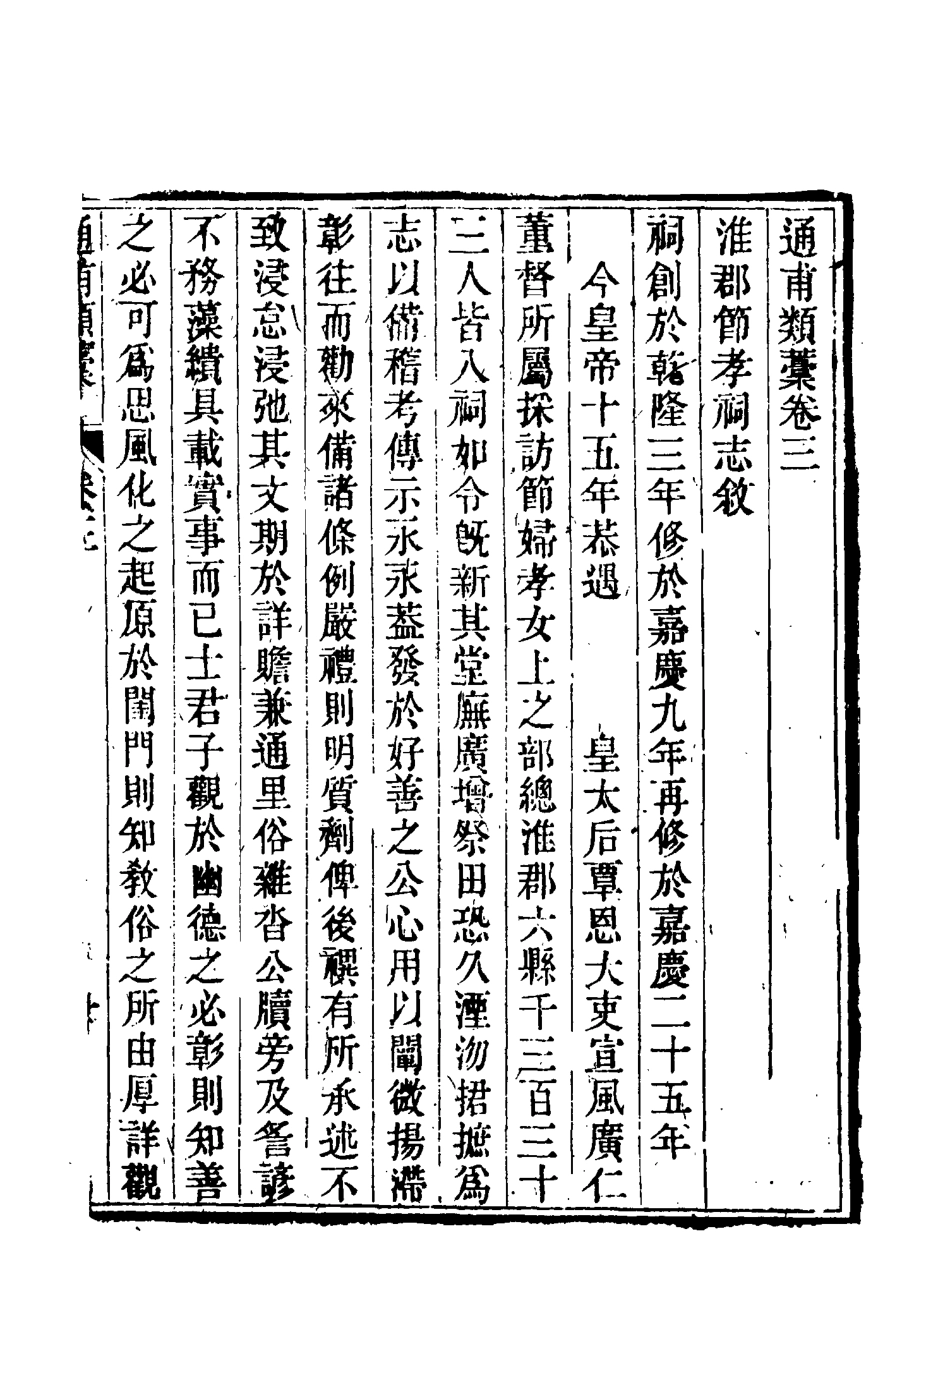 通甫類藁卷三
淮郡節孝祠志敘
祠創於乾隆三年修於嘉慶九年再修於嘉慶二十五年
今皇帝十五年恭遇　皇太后覃恩大吏宣風廣仁
董督所屬採訪節婦孝女上之部總淮郡六縣千三百三十
三人皆入祠如令旣新其堂廡廣增祭田恐久湮沕捃摭爲
志以備稽考傳示永永葢發於好善之公心用以闡微揚滯
彰往而勸來備諸條例嚴禮則明質劑俾後禩有所承述不
致浸怠浸弛其文期於詳贍兼通里俗雜沓公牘旁及詧諺
不務藻繢具載實事而已士君子觀於幽德之必彰則知善
之必可爲思風化之起原於閨門則知敎俗之所由厚詳觀
通甫類藁　卷三